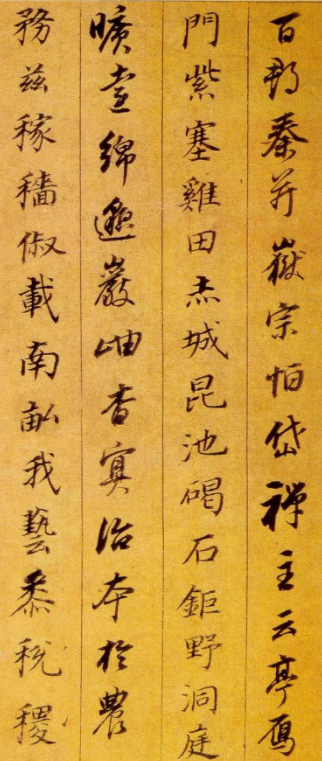 百郡秦并嶽宗恒岱禪主云亭雁
門紫塞雞田赤城昆池碣石鉅野洞庭
曠遠綿邈巖岫杳冥治本於農
務茲稼穡俶載南畝我藝黍稅稷